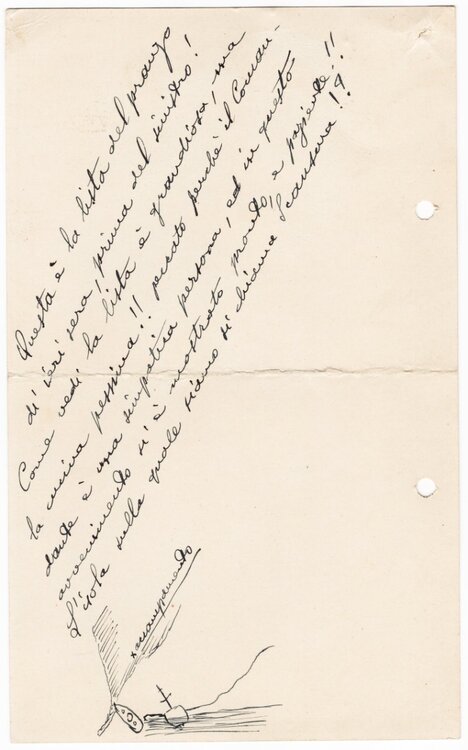 Questa è la lista del pranzo
di ieri sera, prima del sinistro!
Come vedi la lista è grandiosa, ma
la cucina pessima!! peccato perchè il Coman-
dante è una simpatica persona, ed in questo
avvenimento si è mostrato pronto, e paziente!!
L'isola sulla quale siamo si chiama Scansena!?
x accampamento